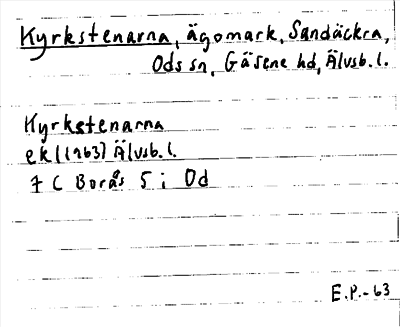 Kyrkstenarna, ägomark, Sandäckra,
Ods sn, Gäsene hd, Älvsb. l.
Kyrkstenarna
ek (1963) Älvsb. l.
7 C Borås 5 i Od
E.P.-63